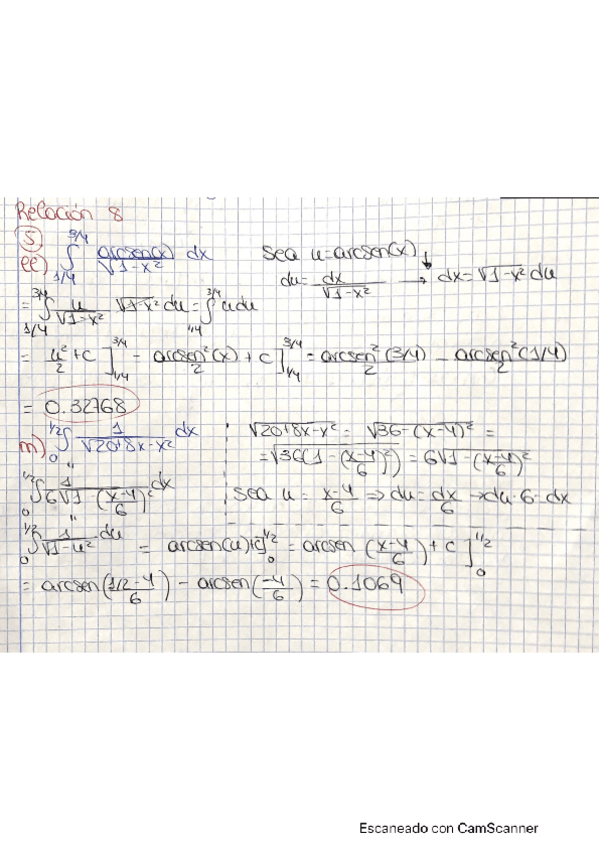 Relación 8
5.
ee) ∫_{1/4}^{3/4} arcsen(x)/√(1-x²) dx   sea u=arcsen(x)
du= dx/√(1-x²) → dx=√(1-x²) du
= ∫_{1/4}^{3/4} u/√(1-x²) √(1-x²) du = ∫_{1/4}^{3/4} u du
= u²/2 + c ]_{1/4}^{3/4} = arcsen²(x)/2 + c ]_{1/4}^{3/4} = arcsen²(3/4)/2 - arcsen²(1/4)/2
= 0.32768
m) ∫_0^{1/2} 1/√(20+8x-x²) dx   √(20+8x-x²) = √(36-(x-4)²) =
" = √(36(1-((x-4)/6)²)) = 6√(1-((x-4)/6)²)
∫_0^{1/2} 1/(6√(1-((x-4)/6)²)) dx   sea u = (x-4)/6 ⇒ du = dx/6 → du·6 = dx
"
∫_0^{1/2} 1/√(1-u²) du = arcsen(u)+c]_0^{1/2} = arcsen((x-4)/6) + c ]_0^{1/2}
= arcsen((1/2-4)/6) - arcsen(-4/6) = 0.1069
Escaneado con CamScanner